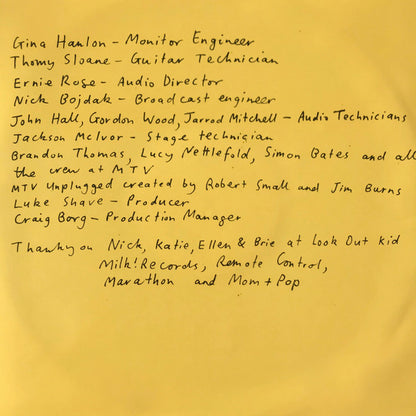 Gina Hanlon - Monitor Engineer
Thomy Sloane - Guitar Technician
Ernie Rose - Audio Director
Nick Bojdak - Broadcast engineer
John Hall, Gordon Wood, Jarrod Mitchell - Audio Technicians
Jackson McIvor - Stage technician
Brandon Thomas, Lucy Nettlefold, Simon Bates and all
the crew at MTV
MTV Unplugged created by Robert Small and Jim Burns
Luke Shave - Producer
Craig Borg - Production Manager
Thankyou Nick, Katie, Ellen & Brie at Look Out Kid
Milk! Records, Remote Control,
Marathon and Mom + Pop